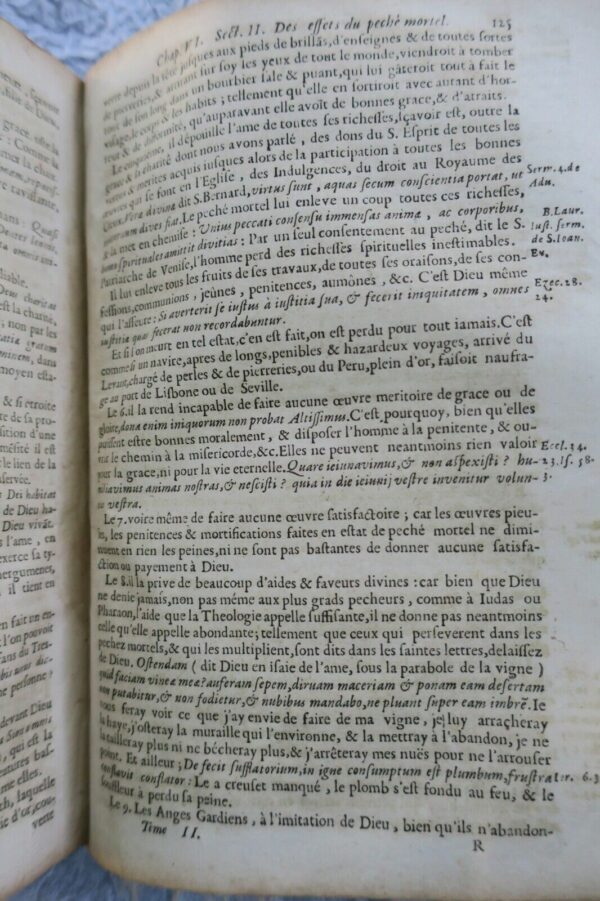 Chap. VI. Sect. II. Des effets du peché mortel. 125
verte depuis la tête jusques aux pieds de brillãs, d'enseignes & de toutes sortes
de pierreries, & attirant sur soy les yeux de tont le monde, viendroit à tomber
tout de son long dans un bourbier sale & puant, qui lui gâteroit tout à fait le
visage, les & les habits ; tellement qu'elle en sortiroit avec autant d'hor-
reur & de difformité, qu'auparavant elle avoit de bonnes grace, & d'attraits.
Le cinquiéme, il dépouille l'ame de toutes ses richesses, sçavoir est, outre la
grace & la charité dont nous avons parlé, des dons du S. Esprit de toutes les
vertus & merites acquis iusques alors de la participation à toutes les bonnes
œuvres qui se font en l'Eglise, des Indulgences, du droit au Royaume des
Cieux. Vera divina dit S. Bernard, virtus sunt, aquas secum conscientia portat, ut
dives fiat. Le peché mortel lui enleve un coup toutes ces richesses,
& la met en chemise : Unius peccati consensu immensas anima, ac corporibus,
bonus spirituales amittit divitias : Par un seul consentement au peché, dit le S.
Patriarche de Venise, l'homme perd des richesses spirituelles inestimables.
Il lui enleve tous les fruits de ses travaux, de toutes ses oraisons, de ses con-
fessions, communions, jeûnes, penitences, aumônes, &c. C'est Dieu même
qui l'asseure : Si averterit se iustus à iustitia sua, & fecerit iniquitatem, omnes
iustitia quas fecerat non recordabuntur.
Et si l'on meurt en tel estat, c'en est fait, on est perdu pour tout iamais. C'est
comme si un navire, apres de longs, penibles & hazardeux voyages, arrivé du
Levant, chargé de perles & de pierreries, ou du Peru, plein d'or, faisoit naufra-
ge au port de Lisbone ou de Seville.
Le 6. il la rend incapable de faire aucune œuvre meritoire de grace ou de
gloire, dona enim iniquorum non probat Altissimus. C'est pourquoy, bien qu'elles
puissent estre bonnes moralement, & disposer l'homme à la penitente, & ou-
vrir le chemin à la misericorde, &c. Elles ne peuvent neantmoins rien valoir
pour la grace, ni pour la vie eternelle. Quare ieiunavimus, & non aspexisti ? hu-
miliavimus animas nostras, & nescisti ? quia in die ieiunij vestre invenitur volun-
vestra.
Le 7. voire même de faire aucune œuvre satisfactoire ; car les œuvres pieu-
ses, les penitences & mortifications faites en estat de peché mortel ne dimi-
nuent en rien les peines, ni ne sont pas bastantes de donner aucune satisfa-
ction ou payement à Dieu.
Le 8. il la prive de beaucoup d'aides & faveurs divines : car bien que Dieu
ne denie jamais, non pas même aux plus grads pecheurs, comme à Iudas ou
Pharaon, l'aide que la Theologie appelle suffisante, il ne donne pas neantmoins
celle qu'elle appelle abondante ; tellement que ceux qui perseverent dans les
pechez mortels, & qui les multiplient, sont dits dans les saintes lettres, delaissez
de Dieu. Ostendam ( dit Dieu en isaie de l'ame, sous la parabole de la vigne )
quid faciam vineæ meæ ? auferam sepem, diruam maceriam & ponam eam desertam
non putabitur, & non fodietur, & nubibus mandabo, ne pluant super eam imbrē. Ie
vous feray voir ce que j'ay envie de faire de ma vigne, je luy arracheray
la haye, j'osteray la muraille qui l'environne, & la mettray à l'abandon, je ne
la tailleray plus ni ne bécheray plus, & j'arrêteray mes nuës pour ne l'arrouser
point. Et ailleur ; Defecit sufflatorium, in igne consumptum est plumbum, frustra
conflavit conflator : Le a creuset manqué, le plomb s'est fondu au feu, & le
souffleur à perdu sa peine.
Le 9. Les Anges Gardiens, à l'imitation de Dieu, bien qu'ils n'abandon-
Tome II. R
Serm. 4. de
Adu.
B. Laur.
Iust. serm.
de S. Ioan.
Ev.
Ezec. 28.
24.
Eccl. 34.
23. Is. 58.
3.
Ier. 6. 3